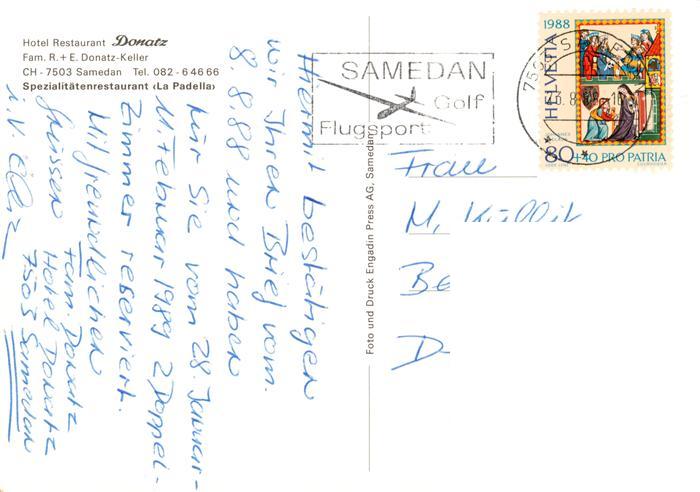 Hotel Restaurant Donatz
Fam. R. + E. Donatz-Keller
CH - 7503 Samedan Tel. 082 - 6 46 66
Spezialitätenrestaurant ‹La Padella›
Hiermit bestätigen
wir Ihren Brief vom
8. 8. 88 und haben
für Sie vom 28. Januar-
11. Februar 1989 2 Doppel-
zimmer reserviert.
Mit freundlichen
Grüssen Fam. Donatz
Hotel Donatz
7503 Samedan
i. V.
Foto und Druck Engadin Press AG, Samedan
SAMEDAN
Golf
Flugsport
1988
HELVETIA
80 +40 PRO PATRIA
Frau
M.
Be
D